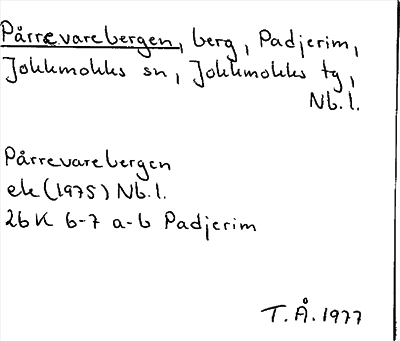 Pårrevarebergen, berg, Padjerim,
Jokkmokks sn, Jokkmokks tg,
Nb.l.
Pårrevarebergen
ek (1975) Nb.l.
26K 6-7 a-b Padjerim
T.Å. 1977